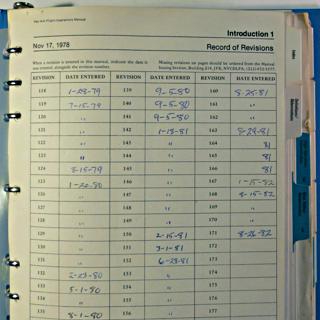 Pan Am Flight Operations Manual
Introduction 1
Nov 17, 1978
Record of Revisions
When a revision is entered in this manual, indicate the date it was entered alongside the revision number.
Missing revisions or pages should be ordered from the Manual Issuing Section, Building 208, JFK, NYC
REVISION DATE ENTERED REVISION DATE ENTERED REVISION DATE ENTERED
118 1-23-79 139 9-5-80 160 8-25-81
119 7-15-79 140 9-5-80 161 "
120 " 141 9-5-80 162 "
121 " 142 1-13-81 163 8-29-81
122 " 143 " 164 81
123 " 144 " 165 81
124 8-15-79 145 " 166 81
125 1-22-80 146 " 167 1-15-82
126 " 147 " 168 8-15-82
127 " 148 " 169 "
128 " 149 " 170 "
129 " 150 2-15-81 171 8-26-82
130 " 151 3-1-81 172
131 " 152 6-23-81 173
132 2-23-80 153 " 174
133 5-1-80 154 " 175
134 " 155 " 176
135 8-1-80 156 " 177
Index